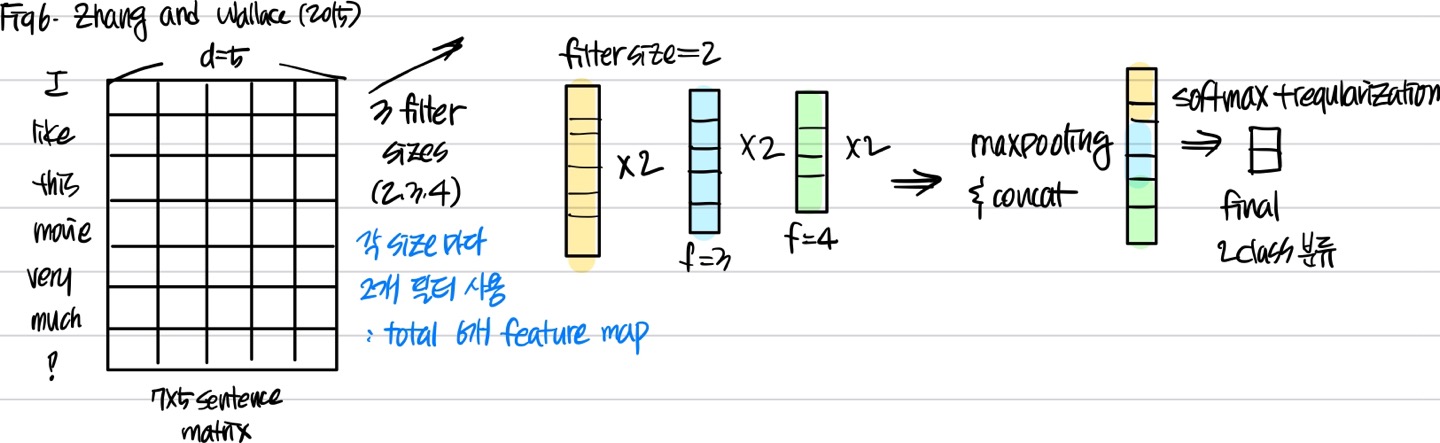 Fig6. Zhang and Wallace (2015)
d=5
I
like
this
movie
very
much
?
7x5 sentence
matrix
3 filter
sizes
(2,3,4)
각 size 마다
2개 필터 사용
: total 6개 feature map
filter size=2
x2
f=3
x2
f=4
x2
⇒
maxpooling
& concat
softmax+regularization
⇒
final
2class 분류